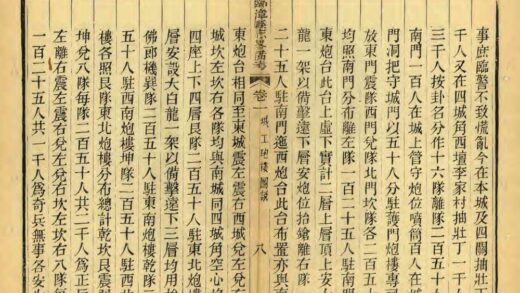 事庶臨警不致慌亂今在本城及四關抽壯
千人又在四城角西壇李家村抽壯丁一千
三千人按卦名分作十六隊離隊二百五十
南門一百人在城上管守炮位噴筒百人在城
門洞把守城門以五十人分駐護門炮樓專
放東門震隊西門兌隊北門坎隊各二百五
均照南門分布離左隊一百二十五人駐南
東炮台此台上虛下實計二層上層頂上
龍一架以備擊遠下層安炮位抬鎗離右隊
二十五人駐南門迤西炮台此台布置亦與南
臨漳縣志畧備考
卷一
城工砲樓圖說
八
東炮台相同至東城震左震右西城兌左兌右
城坎左坎右各隊均與南城同四城角空心炮
四座上下四層艮隊二百五十人駐東北炮樓
層安設大白龍一架以備擊遠下三層均用抬
佛郎機巽隊二百五十人駐東南炮樓乾隊二
五十人駐西南炮樓坤隊二百五十人駐西
樓各照艮隊東北炮樓分布總計乾坎艮震巽
坤兌八隊每隊二百五十人共二千人爲正
左離右震左震右兌左兌右坎左坎右八隊每
一百二十五人共一千人爲奇兵無事各安